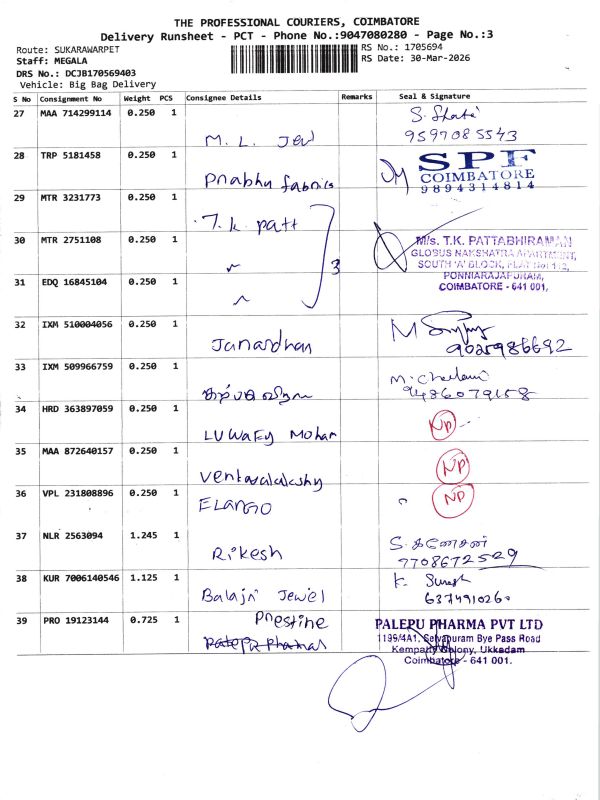 THE PROFESSIONAL COURIERS, COIMBATORE
Delivery Runsheet - PCT - Phone No.:9047080280 - Page No.:3
Route: SUKARAWARPET
RS No.: 1705694
Staff: MEGALA
RS Date: 30-Mar-2026
DRS No.: DCJB170569403
Vehicle: Big Bag Delivery
S No Consignment No Weight PCS Consignee Details Remarks Seal & Signature
27 MAA 714299114 0.250 1
M. L. Jewl
9597085543
28 TRP 5181458 0.250 1
Prabhu fabrics
SPF
COIMBATORE
9894314814
29 MTR 3231773 0.250 1
T.k. patt
30 MTR 2751108 0.250 1
3
M/s. T.K. PATTABHIRAMAN
GLOBUS NAKSHATRA APARTMENT,
SOUTH 'A' BLOCK, FLAT No:
PONNIARAJAPURAM,
COIMBATORE - 641 001.
31 EDQ 16845104 0.250 1
32 IXM 510004056 0.250 1
Janardhan
9025986682
33 IXM 509966759 0.250 1
9486079158
34 HRD 363897059 0.250 1
Mohan
NP
35 MAA 872640157 0.250 1
NP
36 VPL 231808896 0.250 1
ELANGO
NP
37 NLR 2563094 1.245 1
Rikesh
S. கணேசன்
7708672529
38 KUR 7006140546 1.125 1
Balaji Jewel
K. Suresh
6374910260
39 PRO 19123144 0.725 1
Prestine
PALEPU PHARMA PVT LTD
1199/4A1, Selvapuram Bye Pass Road
Kempatty Colony, Ukkadam
Coimbatore - 641 001.